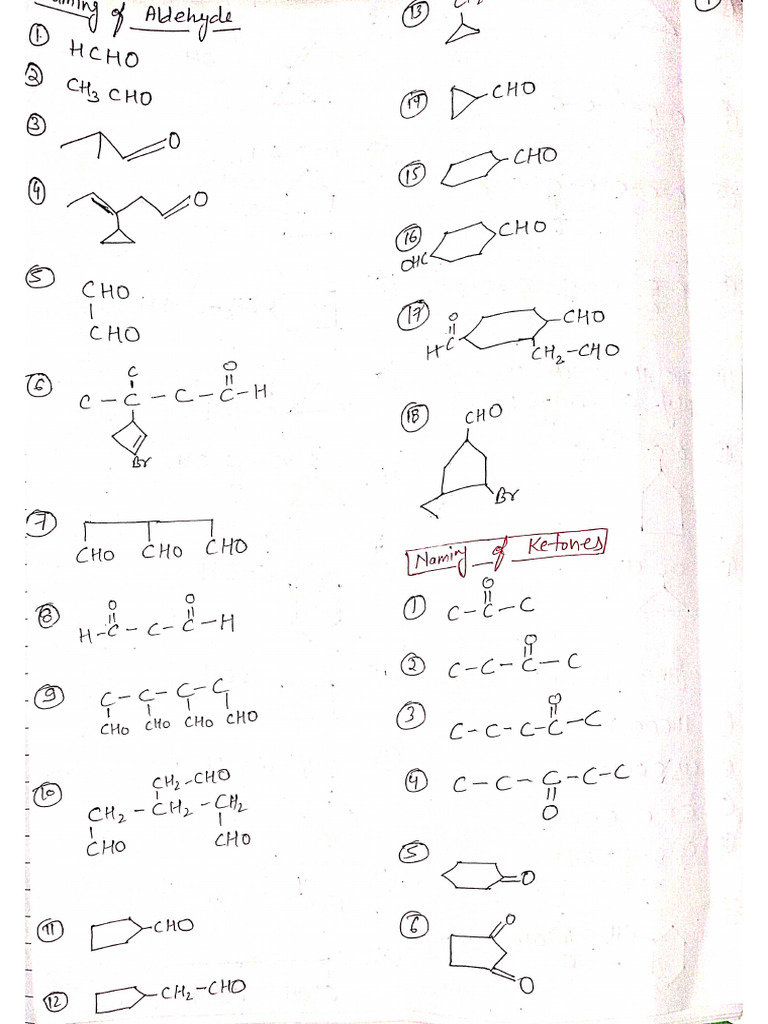 Naming of Aldehyde
1 HCHO
2 CH3 CHO
3 O
4 O
5 CHO
CHO
6 C
O
C - C - C - C - H
Br
7 CHO CHO CHO
8 O O
H - C - C - C - H
9 C - C - C - C
CHO CHO CHO CHO
10 CH2 - CHO
CH2 - CH2 - CH2
CHO CHO
11 CHO
12 CH2 - CHO
13
14 CHO
15 CHO
16 CHO
OHC
17 O
H C
CHO
CH2 - CHO
18 CHO
Br
Naming of Ketones
1 O
C - C - C
2 O
C - C - C - C
3 O
C - C - C - C - C
4 C - C - C - C - C
O
5 O
6 O
O